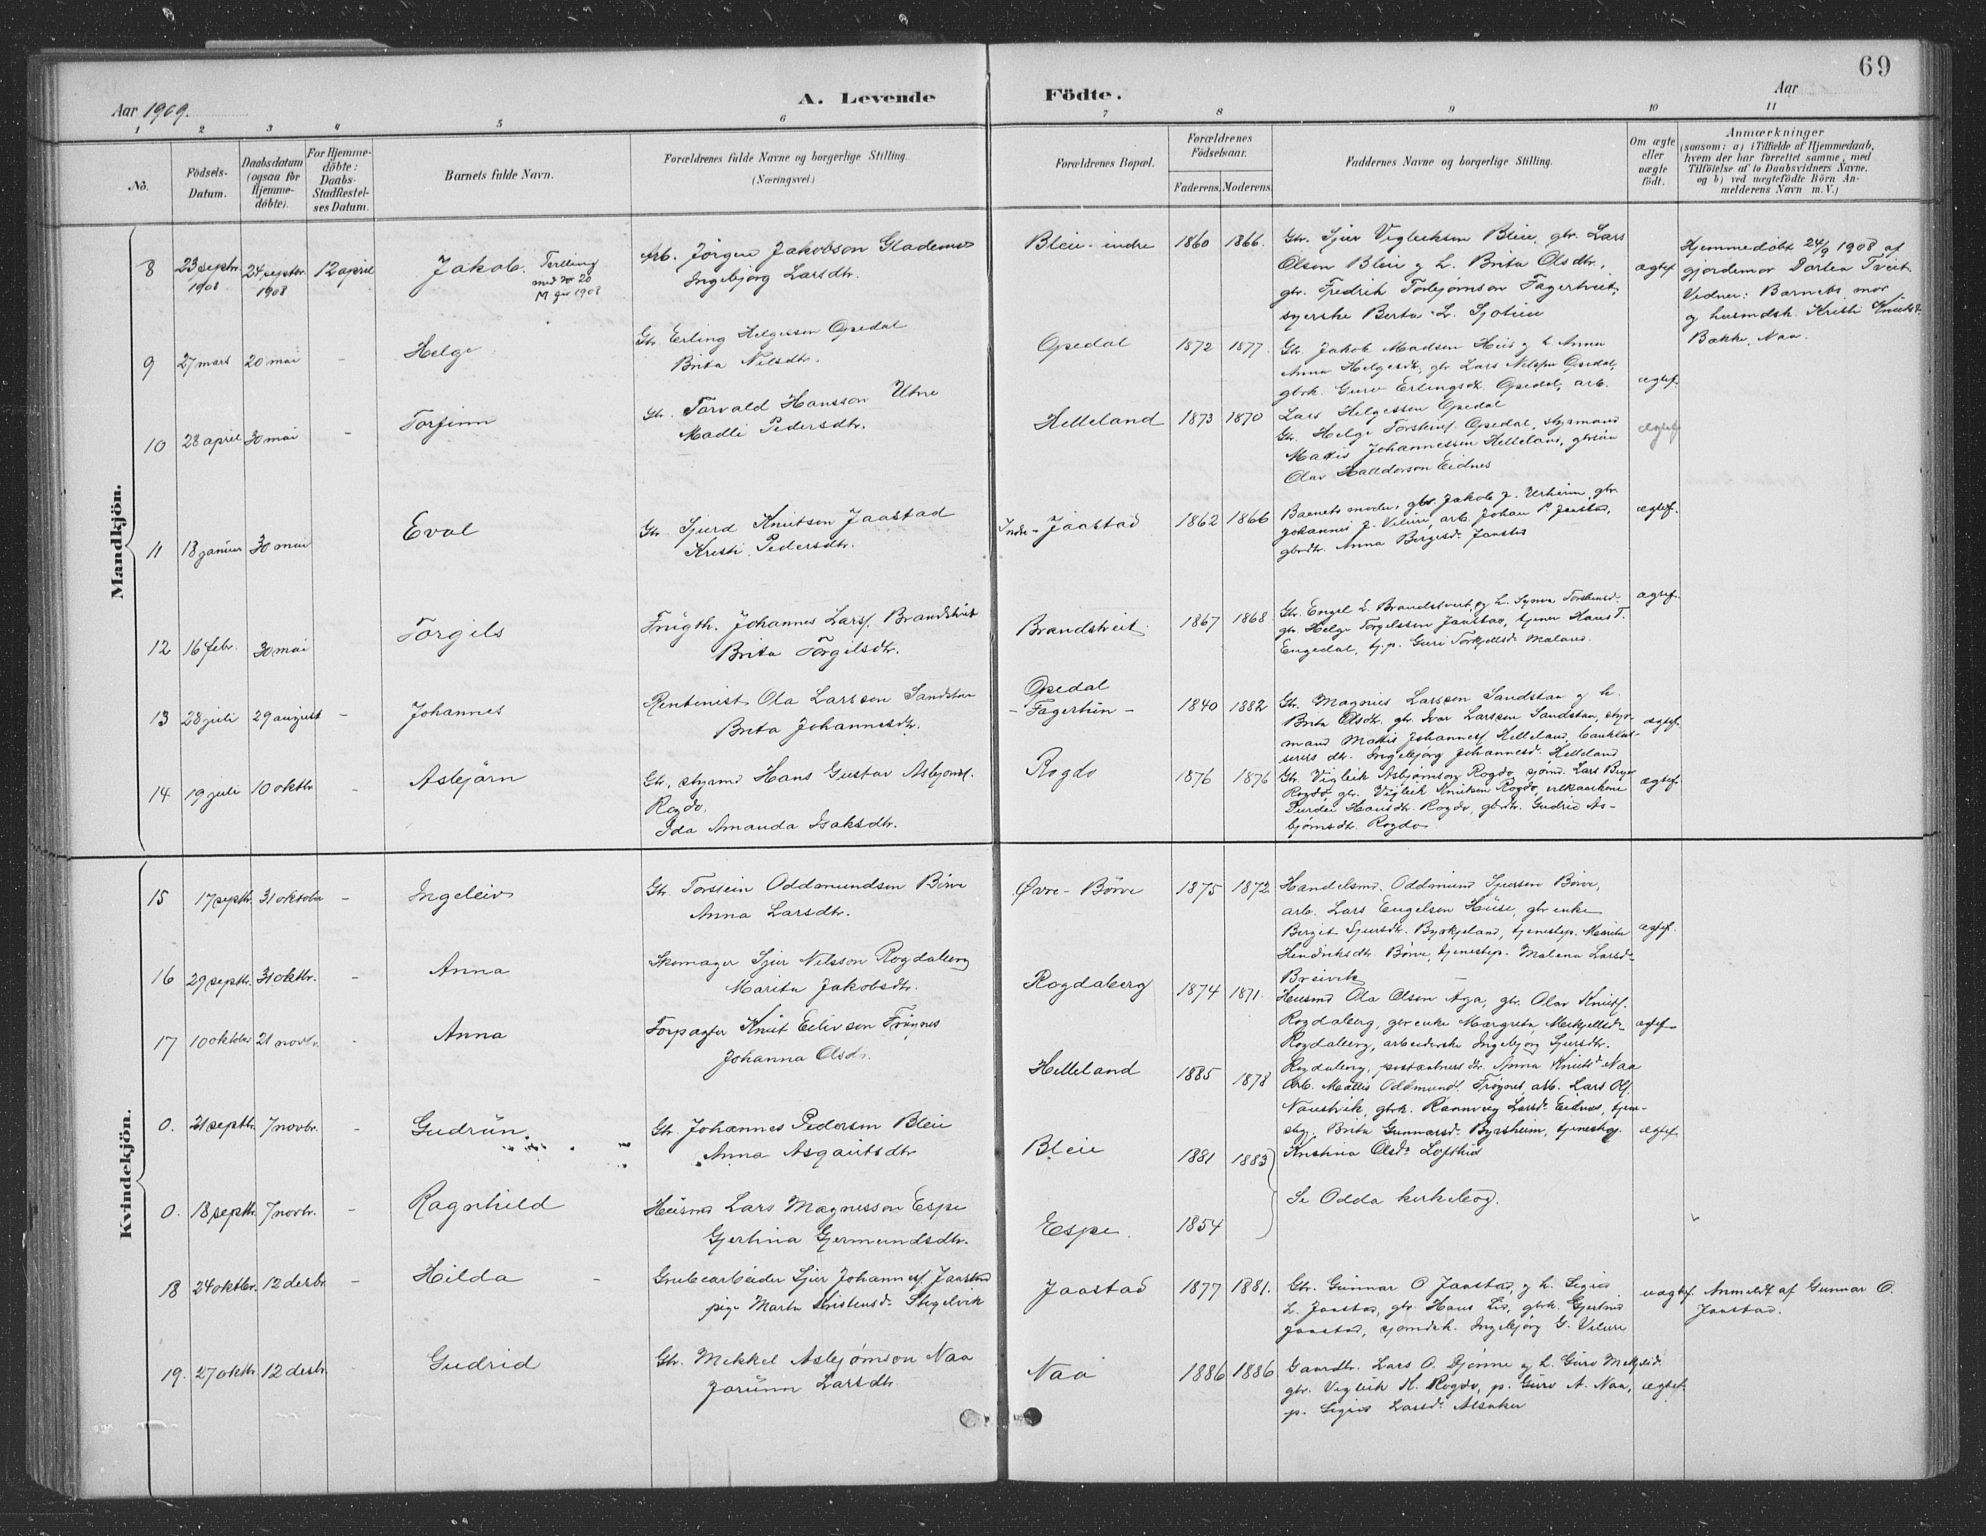 69
Aar 1909.
A. Levende Födte.
Aar
1 2 3 4 5 6 7 8 9 10 11
No.
Födsels-
Datum.
Daabsdatum
(ogsaa for
Hjemme-
döbte).
For Hjemme-
döbte:
Daabs-
Stadfæstel-
ses Datum.
Barnets fulde Navn.
Forældrenes fulde Navne og borgerlige Stilling.
(Næringsvei)
Forældrenes Bopæl.
Forældrenes
Födselsaar.
Faderens. Moderens.
Faddernes Navne og borgerlige Stilling.
Om ægte
eller
uægte
födt.
Anmærkninger
(saasom: a) i Tilfælde af Hjemmedaab,
hvem der har forrettet samme, med
Tilföielse af to Daabsvidners Navne,
og b) ved uægtefödte Börn An-
melderens Navn m. V.)
Mandkjön.
8 23 septbr. 1908 24 septbr. 1908 12 april Jakob. Tvilling
med No 20
M før 1908
Arb. Jörgen Jakobson
Ingebjörg Larsdtr.
Bleie - indre 1860 1866.
Gbr. Sjur Vigleiksen Bleie, gbr. Lars
Olsen Bleie og h. Brita Olsdtr.,
gbr. Fredrik Torbjørnson Fagertveit,
syerske Berta L.
ægtef.
Hjemmedøbt 24/9 1908 af
gjordemor Dortea Tveit.
Vidner: Barnets mor
og husmdsk. Kristi
Bække, Naa.
9 27 mars 20 mai - Helge
Gbr. Erling Helgessen Opedal
Brita Nilsdtr.
Opedal 1872 1877.
Gbr. Jakob Madsen Hus og h. Anna
Anna Helgesdtr, gbr Lars Nilssen Opedal,
gbrk. Guro Erlingsdtr. Opedal, arb.
Lars Helgessen Opedal
ægtef.
10 28 april 30 mai - Torfinn
Gbr. Torvald Hansson Utne
Madli Pedersdtr.
Helleland 1873 1870
Gbr. Helge Torsteins. Opedal, styrmand
Mattis Johannessen Helleland, gbrsøn
Olav Halldorson Eidnes
ægtef.
11 18 januar 30 mai Eval
Gbr. Sjurd Knutson Jaastad
Kristi Pedersdtr.
Indre - Jaastad 1862 1866
Barnets moder, gbr. Jakob J. Urheim, gbr.
Johannes J. Vilure, arb. Johan P. Jaastad,
gbrdtr. Anna Børgesdr. Jaastad
ægtef.
12 16 febr. 30 mai Torgils
Frugth. Johannes Larss. Brandstveit
Brita Torgilsdtr.
Brandstveit. 1867 1868
Gbr. Engel L. Brandstveit og h. Synva Torsteinsd.
gbr. Helge Torgelssen Jaastad, tjener Hans T.
Engedal, tj.p. Guri Torkjellsdr Maland.
ægtef.
13 28 juli 29 august - Johannes
Rentenist Ola Larssen Sandstøa
Brita Johannesdtr.
Opedal
- Fagertun - 1840 1882
Gbr. Magnus Larssen Sandstøa og h.
Brita Olsdtr. gbr. Ivar Larssen Sandstøa, styr-
mand Mattis Johanness. Helleland, bankkas-
serers dtr. Ingebjørg Johannesd. Helleland
ægtef.
14 19 juli 10 oktbr. - Asbjörn
Gbr., styrmd Hans Gustav Asbjørns.
Rogdo.
Ida Amanda Isaksdtr.
Rogdo 1876 1876
Gbr. Vigleik Asbjørnson Rogdo, sjømd. Lars
Rogdo, gbr. Vigleik Knutsen Rogdo, enkekone
Durdei Hansdtr. Rogdo, gbrdtr. Gudrid As-
bjørnsdtr. Rogdo
ægtef.
Kvindekjön.
15 17 septbr. 31 oktober - Ingeleiv
Gbr. Torstein Oddmundsen Börve
Anna Larsdtr.
Øvre - Börve 1875 1872
Handelsmd. Oddmund Sjursen Börve,
arb. Lars Engelsen Huse, gbr enke
Berget Sjursdtr. Byrkjeland, tjenestep. Marita
Hendriksdtr Börve, tjenestep. Malena Larsdr.
Breivik
ægtef.
16 29 septbr. 31 oktbr. - Anna
Skomager Sjur Nilsson Rogdaberg
Marita Jakobsdtr.
Rogdaberg 1874 1871.
Husmd Ola Olsen Aga, gbr. Olav Knuts.
Rogdaberg, gbr enke Margreta Mikjellsdr
Rogdaberg, arbeiderske Ingebjørg Sjursdtr.
Rogdaberg, dtr. Anna Knutsd. Naa
ægtef.
17 10 oktober 21 novbr. - Anna
Forpagter Knut Eilivsen Frøynes
Johanna Olsdr.
Helleland 1885 1878
Arb. Mattis Oddmunds. Frøynes, arb. Lars Ols.
Naustvik, gbrk. Rannveig Larsdr Eidnes, tjene-
stp. Brita Gunnarsd. Byrsheim, tjenestep.
Kristina Olsdr Lofthus
ægtef.
0. 21 septbr. 7 novbr. Gudrun.
Gbr. Johannes Pederson Bleie
Anna Asgautsdtr
Bleie 1881 1883
Se Odda kirkebog.
0. 18 septbr. 7 novbr. - Ragnhild
Husmd Lars Magnesson Espe
Gjertina Gjermundsdtr.
Espe. 1854
18 24 oktbr. 12 desbr. - Hilda
Grubearbeider Sjur Johanness. Jaastad
pige Marta Kristensd. Stegelvik
Jaastad 1877 1881.
Gbr. Gunnar O. Jaastad, og h. Sigrid
L. Jaastad, gbr. Hans Lid, gbrk. Gjertrud
Jaastad, sjømdsk. Ingebjørg G. Vilure
uægtef. Anmeldt af Gunnar O.
Jaastad.
19. 27 oktbr. 12 desbr. Gudrid
Gbr. Mikkel Asbjørnson Naa
Jorunn Larsdtr.
Naa 1886 1886
Gaardbr. Lars O. Djønne og h. Guro Mikjelsd.
gbr. Vigleik K. Rogdo, p. Guro A. Naa,
p. Sigrid Larsdr Alsaker
ægtef.